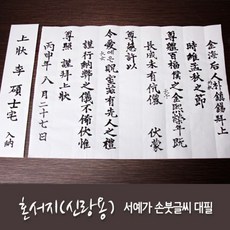 金海后人 金鎮鎬 拜上
時維孟秋之節
尊體百福 僕之 金熙 年旣
長成未有伉儷 伏蒙
尊慈許以
令愛 貺室 玆有先人之禮
謹行納幣之儀 不備 伏惟
尊照 謹拜上狀
丙申年 八月 二十七日
上狀 李 碩士宅 入納
혼서지(신랑용) 서예가 손붓글씨 대필